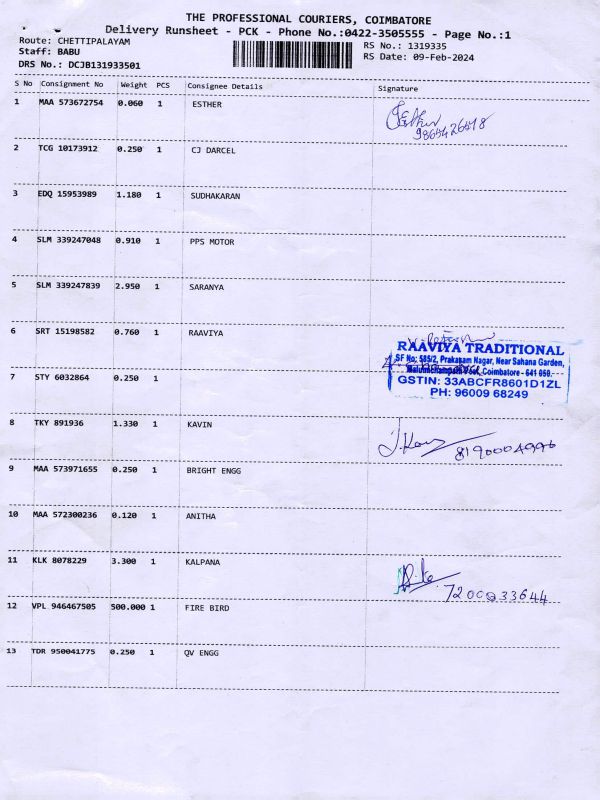 THE PROFESSIONAL COURIERS, COIMBATORE
Delivery Runsheet - PCK - Phone No.:0422-3505555 - Page No.:1
Route: CHETTIPALAYAM
RS No.: 1319335
Staff: BABU
RS Date: 09-Feb-2024
DRS No.: DCJB131933501
S No Consignment No Weight PCS Consignee Details Signature
1 MAA 573672754 0.060 1 ESTHER
2 TCG 10173912 0.250 1 CJ DARCEL
3 EDQ 15953989 1.180 1 SUDHAKARAN
4 SLM 339247048 0.910 1 PPS MOTOR
5 SLM 339247839 2.950 1 SARANYA
6 SRT 15198582 0.760 1 RAAVIYA
RAAVIYA TRADITIONAL
SF No: 585/2, Prakasam Nagar, Near Sahana Garden,
Coimbatore - 641 050.
GSTIN: 33ABCFR8601D1ZL
PH: 96009 68249
7 STY 6032864 0.250 1
8 TKY 891936 1.330 1 KAVIN
9 MAA 573971655 0.250 1 BRIGHT ENGG
10 MAA 572300236 0.120 1 ANITHA
11 KLK 8078229 3.300 1 KALPANA
7200933644
12 VPL 946467505 500.000 1 FIRE BIRD
13 TDR 950041775 0.250 1 QV ENGG